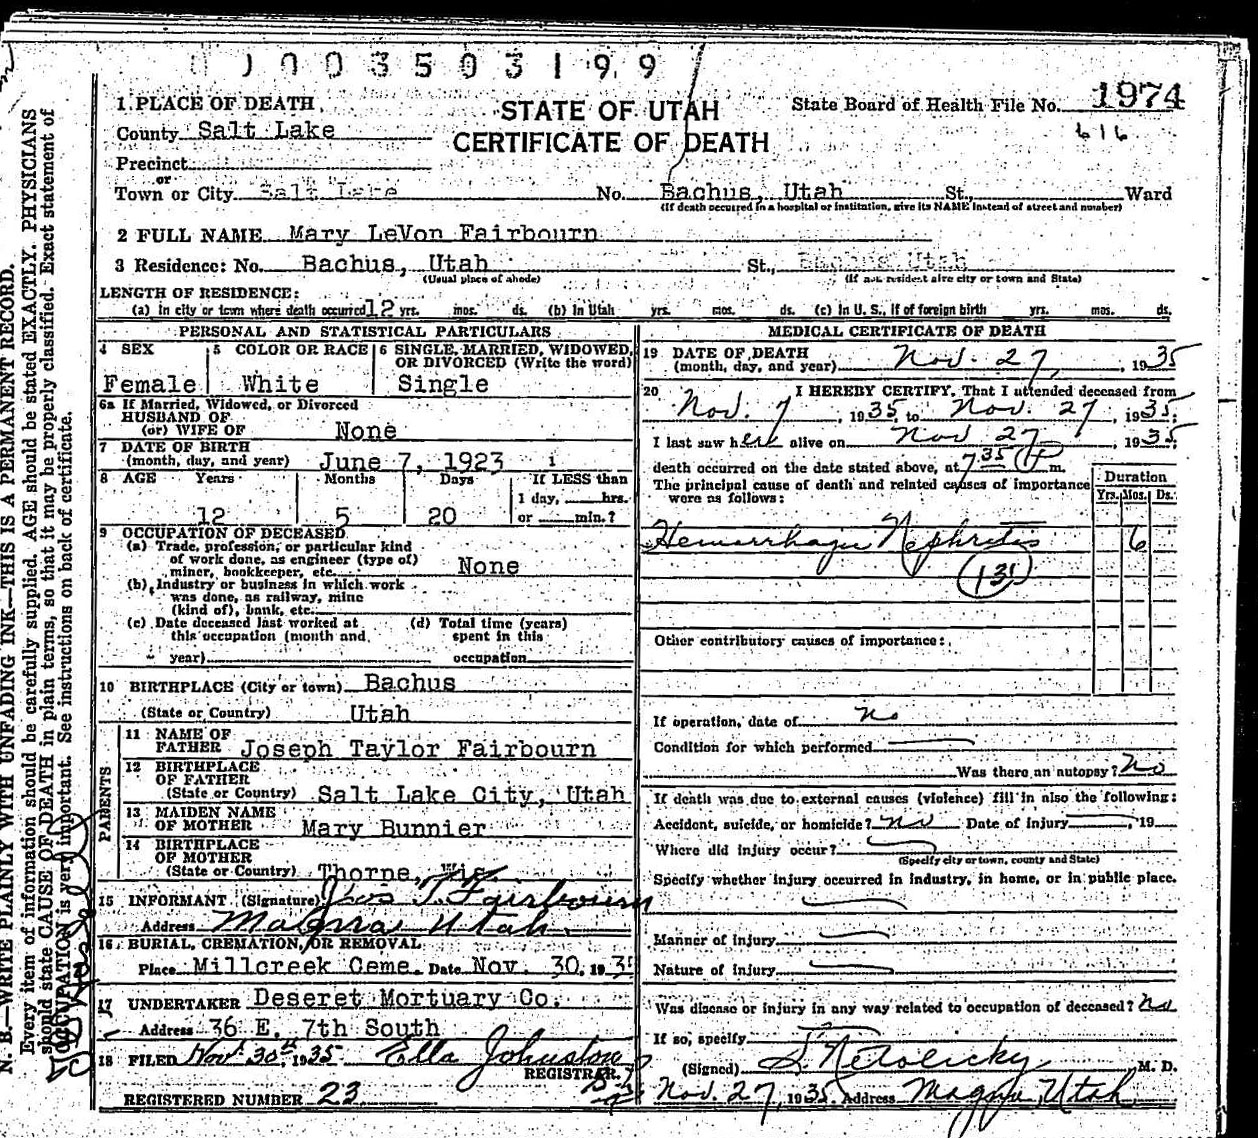 0003503199
1 PLACE OF DEATH
STATE OF UTAH
CERTIFICATE OF DEATH
State Board of Health File No. 1974
616
County Salt Lake
Precinct
or
Town or City Salt Lake No. Bachus, Utah St., Ward
(If death occurred in a hospital or institution, give its NAME instead of street and number)
2 FULL NAME Mary LeVon Fairbourn
3 Residence: No. Bachus, Utah St., Bachus Utah
(Usual place of abode) (If not resident give city or town and State)
LENGTH OF RESIDENCE:
(a) In city or town where death occurred 12 yrs. mos. ds. (b) In Utah yrs. mos. ds. (c) In U. S., if of foreign birth yrs. mos. ds.
PERSONAL AND STATISTICAL PARTICULARS
4 SEX Female
5 COLOR OR RACE White
6 SINGLE, MARRIED, WIDOWED, OR DIVORCED (Write the word) Single
6a If Married, Widowed, or Divorced
HUSBAND OF
(or) WIFE OF None
7 DATE OF BIRTH
(month, day, and year) June 7, 1923
8 AGE Years Months Days If LESS than
1 day, hrs.
12 5 20 or min.?
9 OCCUPATION OF DECEASED
(a) Trade, profession, or particular kind
of work done, as engineer (type of)
miner, bookkeeper, etc. None
(b) Industry or business in which work
was done, as railway, mine
(kind of), bank, etc.
(c) Date deceased last worked at (d) Total time (years)
this occupation (month and spent in this
year) occupation
10 BIRTHPLACE (City or town) Bachus
(State or Country) Utah
PARENTS
11 NAME OF
FATHER Joseph Taylor Fairbourn
12 BIRTHPLACE
OF FATHER
(State or Country) Salt Lake City, Utah
13 MAIDEN NAME
OF MOTHER Mary Bunnier
14 BIRTHPLACE
OF MOTHER
(State or Country) Thorne, Wis.
15 INFORMANT (Signature) Jos T. Fairbourn
Address Magna Utah.
16 BURIAL, CREMATION, OR REMOVAL
Place Millcreek Ceme. Date Nov. 30, 1935
17 UNDERTAKER Deseret Mortuary Co.
Address 36 E. 7th South
18 FILED Nov. 30th, 1935 Ella Johnston
REGISTRAR.
REGISTERED NUMBER 23
MEDICAL CERTIFICATE OF DEATH
19 DATE OF DEATH
(month, day, and year) Nov. 27, 1935
20 I HEREBY CERTIFY, That I attended deceased from
Nov. 7, 1935 to Nov. 27, 1935;
I last saw her alive on Nov 27, 1935
death occurred on the date stated above, at 7 35 P m.
The principal cause of death and related causes of importance
were as follows:
Duration
Yrs. Mos. Ds.
Hemorrhagic Nephritis 6
131
Other contributory causes of importance:
If operation, date of no
Condition for which performed
Was there an autopsy? No
If death was due to external causes (violence) fill in also the following:
Accident, suicide, or homicide? no Date of injury , 19
Where did injury occur?
(Specify city or town, county and State)
Specify whether injury occurred in industry, in home, or in public place.
Manner of injury
Nature of injury
Was disease or injury in any way related to occupation of deceased? no
If so, specify
(Signed) S. Netolicky, M. D.
Nov. 27, 1935 Address Magna, Utah
N. B.—WRITE PLAINLY WITH UNFADING INK—THIS IS A PERMANENT RECORD.
Every item of information should be carefully supplied. AGE should be stated EXACTLY. PHYSICIANS
should state CAUSE OF DEATH in plain terms, so that it may be properly classified. Exact statement of
OCCUPATION is very important. See instructions on back of certificate.